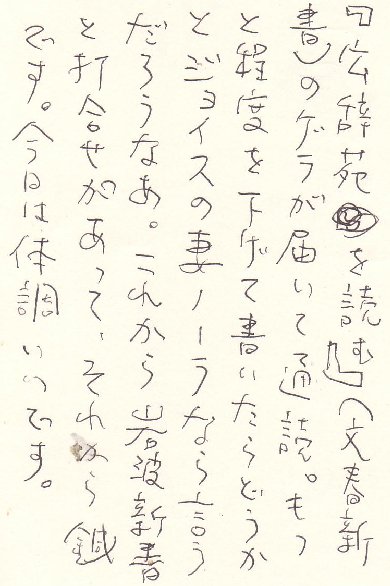 『広辞苑を読む』(文春新
書)のゲラが届いて通読。もっ
と程度を下げて書いたらどうか
とジョイスの妻ノーラなら言う
だろうなあ。これから岩波新書
と打合せがあって、それから鍼
です。今日は体調いいです。